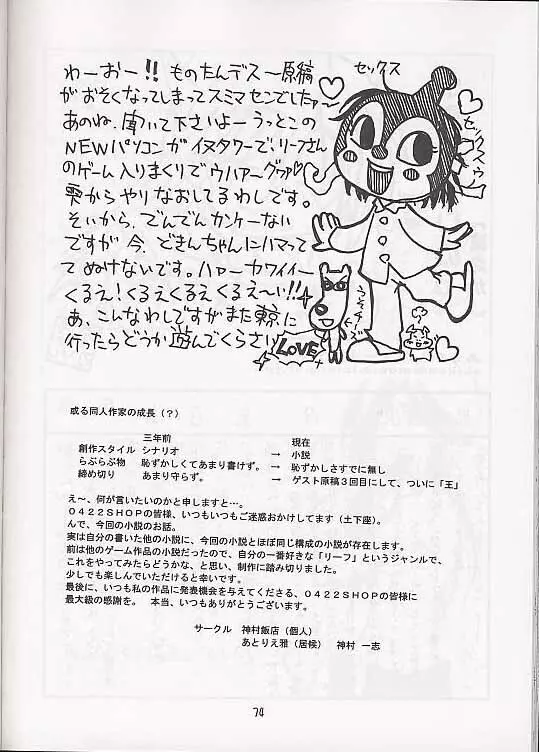 わーおー!! ものたんデス〜原稿
がおそくなってしまってスミマセンでしたァ〜
あのね、聞いて下さいよーうっとこの
NEWパソコンがイヌタワーで、リーフさん
のゲーム入りまくりでウハァ〜グヴァ♡
雫からやりなおしてるわしです。
そいから、でんでんカンケーない
ですが今、どきんちゃんにハマって
てぬけないです。ハァーカワイイー
くるえ!くるえくるえくるえ〜い!!
あ、こんなわしですがまた東京に
行ったらどうか遊んでくらさい
セックス
セックスゥ
LOVE
或る同人作家の成長(?)
三年前 現在
創作スタイル シナリオ → 小説
らぶらぶ物 恥ずかしくてあまり書けず。 → 恥ずかしさすでに無し
締め切り あまり守らず。 → ゲスト原稿3回目にして、ついに「王」
え〜、何が言いたいのかと申しますと…。
0422SHOPの皆様、いつもいつもご迷惑おかけしてます(土下座)。
んで、今回の小説のお話。
実は自分の書いた他の小説に、今回の小説とほぼ同じ構成の小説が存在します。
前は他のゲーム作品の小説だったので、自分の一番好きな「リーフ」というジャンルで、
これをやってみたらどうかな、と思い、制作に踏み切りました。
少しでも楽しんでいただけると幸いです。
最後に、いつも私の作品に発表機会を与えてくださる、0422SHOPの皆様に
最大級の感謝を。 本当、いつもありがとうございます。
サークル 神村飯店(個人)
あとりえ雅(居候) 神村 一志
74